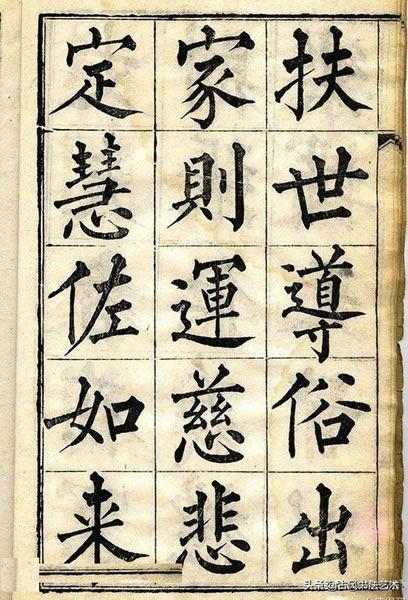 扶世導俗出
家則運慈悲
定慧佐如来
头条@古风书法艺术